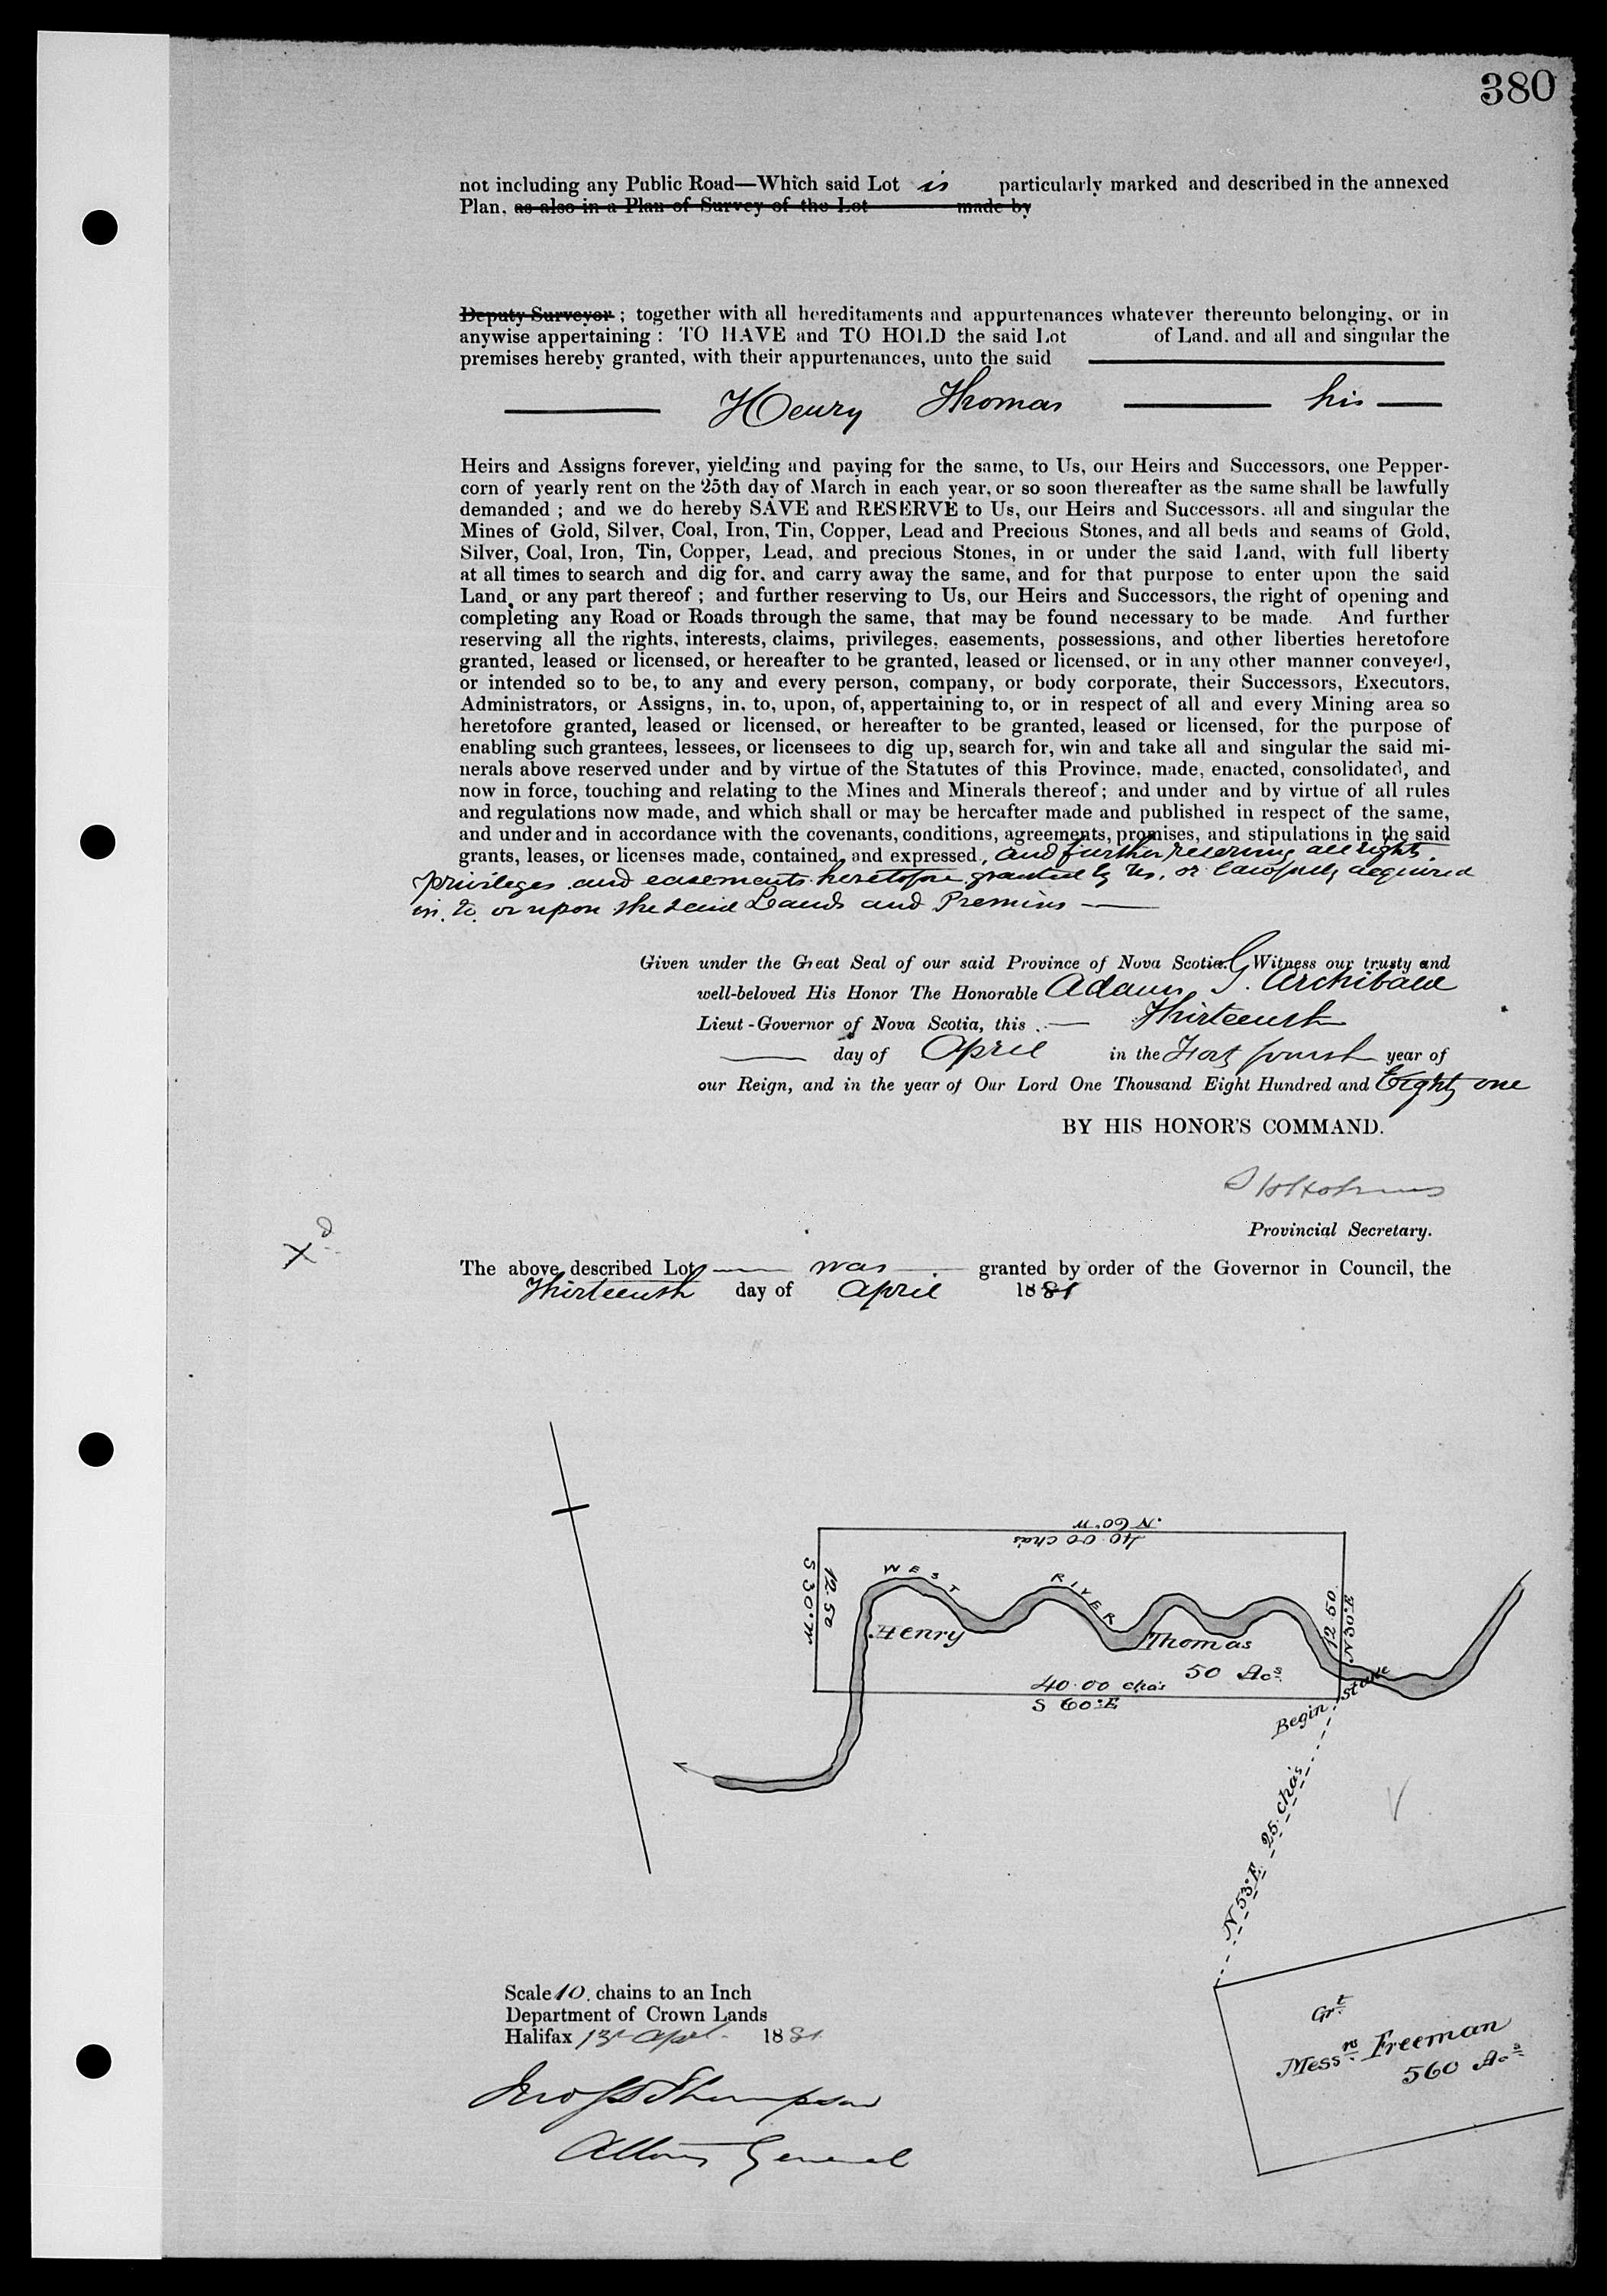 380
not including any Public Road—Which said Lot is particularly marked and described in the annexed
Plan, as also in a Plan of Survey of the Lot made by
Deputy Surveyor ; together with all hereditaments and appurtenances whatever thereunto belonging, or in
anywise appertaining : TO HAVE and TO HOLD the said Lot of Land. and all and singular the
premises hereby granted, with their appurtenances, unto the said
Henry Thomas his
Heirs and Assigns forever, yielding and paying for the same, to Us, our Heirs and Successors, one Pepper-
corn of yearly rent on the 25th day of March in each year, or so soon thereafter as the same shall be lawfully
demanded ; and we do hereby SAVE and RESERVE to Us, our Heirs and Successors. all and singular the
Mines of Gold, Silver, Coal, Iron, Tin, Copper, Lead and Precious Stones, and all beds and seams of Gold,
Silver, Coal, Iron, Tin, Copper, Lead, and precious Stones, in or under the said Land, with full liberty
at all times to search and dig for, and carry away the same, and for that purpose to enter upon the said
Land, or any part thereof ; and further reserving to Us, our Heirs and Successors, the right of opening and
completing any Road or Roads through the same, that may be found necessary to be made. And further
reserving all the rights, interests, claims, privileges, easements, possessions, and other liberties heretofore
granted, leased or licensed, or hereafter to be granted, leased or licensed, or in any other manner conveyed,
or intended so to be, to any and every person, company, or body corporate, their Successors, Executors,
Administrators, or Assigns, in, to, upon, of, appertaining to, or in respect of all and every Mining area so
heretofore granted, leased or licensed, or hereafter to be granted, leased or licensed, for the purpose of
enabling such grantees, lessees, or licensees to dig up, search for, win and take all and singular the said mi-
nerals above reserved under and by virtue of the Statutes of this Province, made, enacted, consolidated, and
now in force, touching and relating to the Mines and Minerals thereof ; and under and by virtue of all rules
and regulations now made, and which shall or may be hereafter made and published in respect of the same,
and under and in accordance with the covenants, conditions, agreements, promises, and stipulations in the said
grants, leases, or licenses made, contained, and expressed, and further reserving all rights.
privileges and easements heretofore granted by Us, or lawfully acquired
in, to, or upon the said Lands and Premises
Given under the Great Seal of our said Province of Nova Scotia. Witness our trusty and
well-beloved His Honor The Honorable Adams G. Archibald
Lieut-Governor of Nova Scotia, this Thirteenth
day of April in the Forty fourth year of
our Reign, and in the year of Our Lord One Thousand Eight Hundred and Eighty one
BY HIS HONOR'S COMMAND.
S H Holmes
Provincial Secretary.
The above described Lot was granted by order of the Governor in Council, the
Thirteenth day of April 1881
N 60° W
40.00 chas
S 30° W
12.50
WEST RIVER
12.50
N 30° E
Henry Thomas
50 Acs
40.00 chas
S 60° E
Begin Stake
N 53° E 25 chas
Grt
Messrs Freeman
560 Acs
Scale 10. chains to an Inch
Department of Crown Lands
Halifax 13th April 1881
Jno S D Thompson
Attorney General